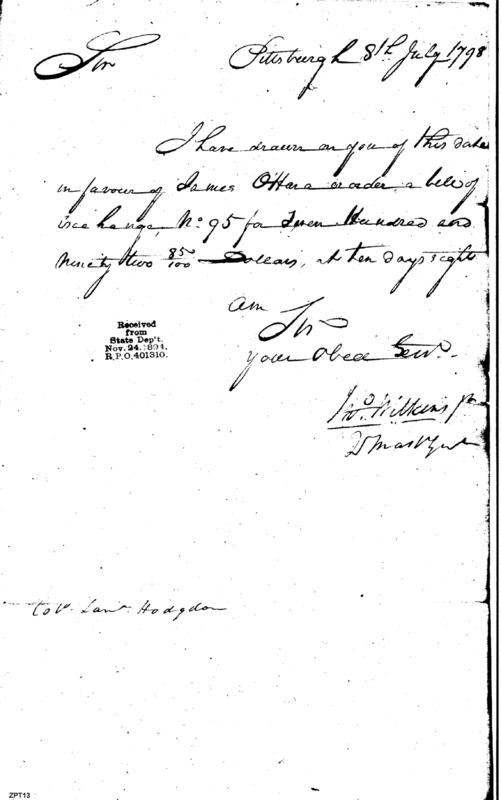 Sir Pittsburgh 8th July 1798
I have drawn on you of this date
in favour of James O'Hara or order a bill of
exchange, No 95 for Seven Hundred and
Ninety two 85/100 Dollars, at ten days sight
am
Sir
your Obed Serv.
Jno. Wilkins Jr
Received
from
State Dep't.
Nov. 24. 1894.
R.P.O. 401310.
Saml Hodgdon
ZPT13